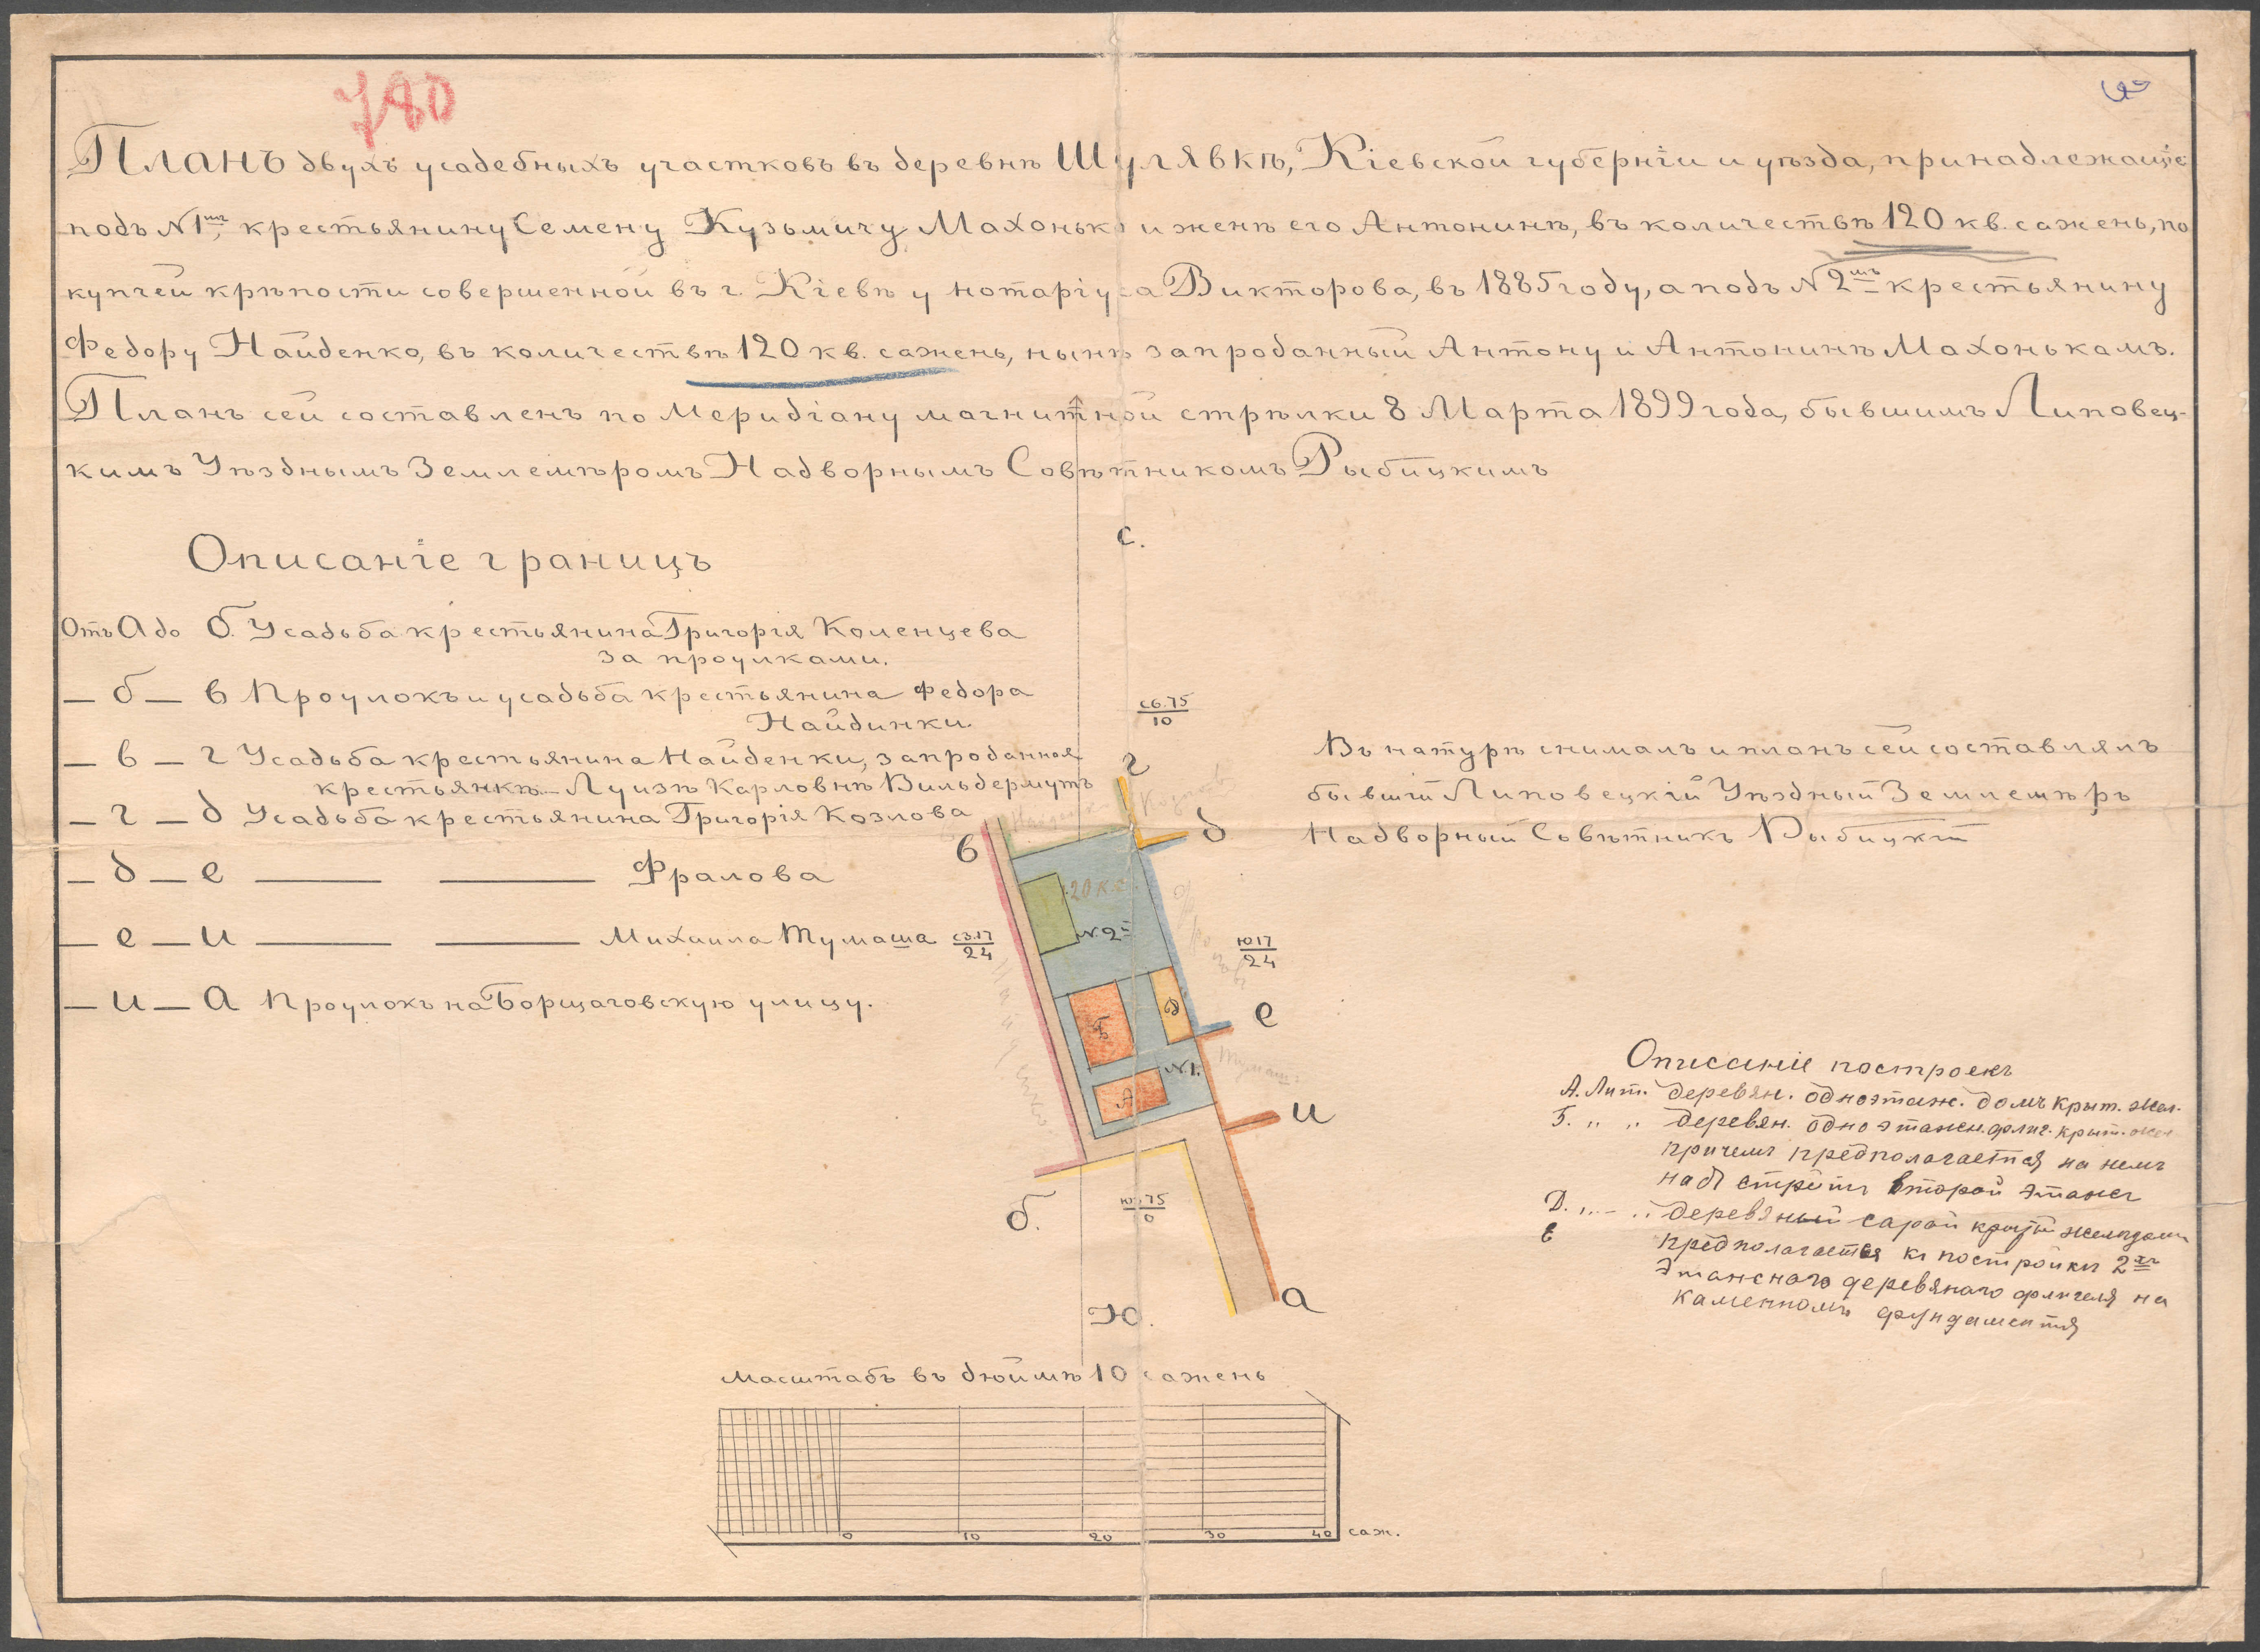 780
Планъ двухъ усадебныхъ участковъ въ деревнѣ Шулявкѣ, Кіевской губерніи и уѣзда, принадлежащіе
подъ N 1мъ, крестьянину Семену Кузьмичу Махонько и женѣ его Антонинѣ, въ количествѣ 120 кв. сажень, по
купчей крѣпости совершенной въ г. Кіевѣ у нотаріуса Викторова, въ 1885 году, а подъ N 2мъ крестьянину
Федору Найденко, въ количествѣ 120 кв. сажень, нынѣ запроданный Антону и Антонинѣ Махонькамъ.
Планъ сей составленъ по Меридіану магнитной стрѣлки 8 Марта 1899 года, бывшимъ Липовец-
кимъ Уѣзднымъ Землемѣромъ Надворнымъ Совѣтникомъ Рыбицкимъ
С.
Описаніе границъ
Отъ А до б. Усадьба крестьянина Григорія Коленцева
за проулками.
— б — в Проулокъ и усадьба крестьянина Федора
Найдинки.
— в — г Усадьба крестьянина Найденки, запроданная
крестьянкѣ — Луизѣ Карловнѣ Вильдермутъ
— г — д Усадьба крестьянина Григорія Козлова
— д — е —— —— Фралова
— е — и —— —— Михаила Тумаша
— и — А Проулокъ на Борщаговскую улицу.
св.75
10
г
Козлов
д
в
120 к.с.
N. 2й
сз.17
24
ю17
24
Б
Д
е
N. 1.
Тумаш
А
и
б.
ю.75
0
а
Ю.
Въ натурѣ снималъ и планъ сей составлялъ
бывшій Липовецкій Уѣздный Землемѣръ
Надворный Совѣтникъ Рыбицкій
Описаніе построекъ
А. Лит. деревян. одноэтаж. домъ крыт. жел.
Б. " " деревян. одноэтажн. флиг. крыт. жел
причемъ предполагается на немъ
надстроить второй этажъ
Д. " - " деревяный сарай крытый желѣзомъ
Е предполагается къ постройки 2хъ
этажнаго деревянаго флигеля на
каменномъ фундаментѣ
Масштабъ въ дюймѣ 10 сажень
0 10 20 30 40 саж.